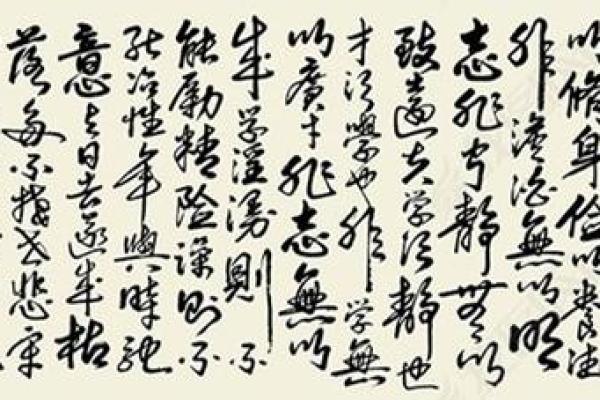 以脩身儉以養德
非澹泊無以明
志非宁靜無以
致遠夫学須靜也
才須學也非学無
以廣才非志無以
成学淫漫則不
能勵精险躁則不
能冶性年與時馳
意与日去遂成枯
落多不接世悲守